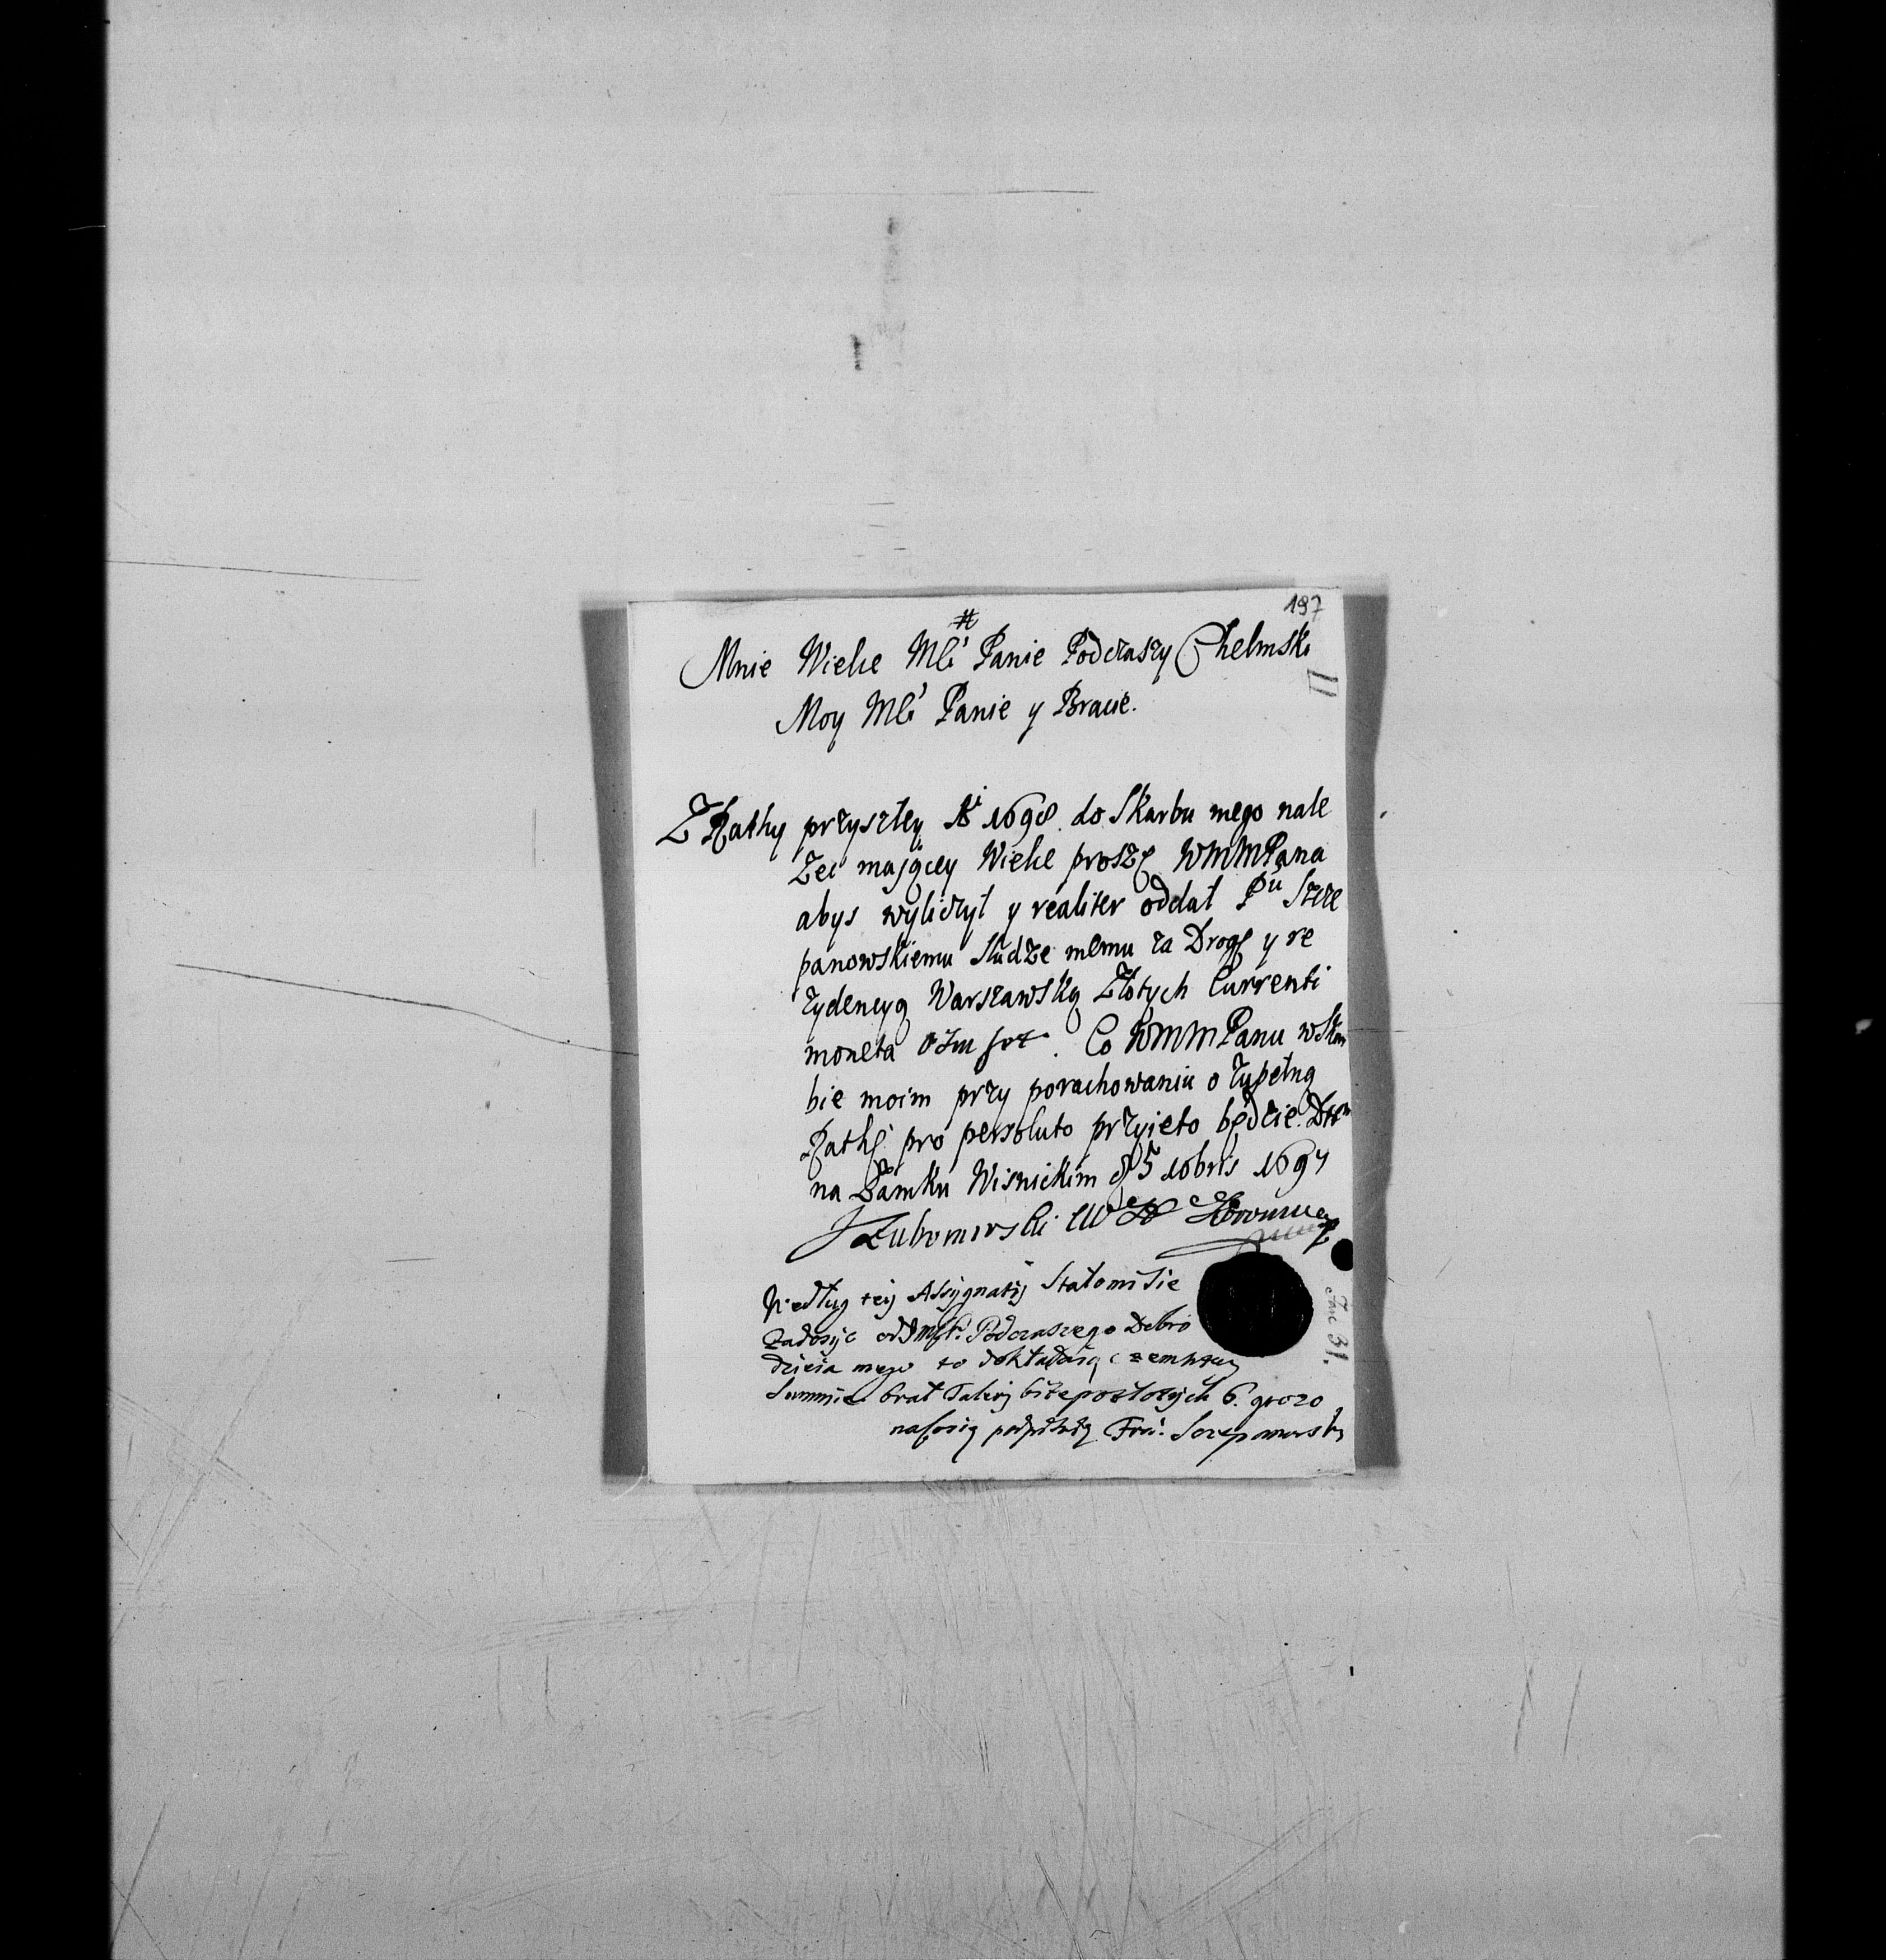 197
#
Mnie Wielce Mći Panie Podczaszy Chelmski
Moy Mći Panie y Bracie.
Z Rathy przyszłey Ai 1698. do Skarbu mego nale
żeć mająćey Wielce proszę WMMPana
abys wyliczył y realiter oddał Pu Szcze
panowskiemu Słudze memu za Drogę y re
zydencyą Warszawską Złotych Currenti
moneta osmset. Co WMMPanu w Skar
bie moim przy porachowaniu o zupełną
Rathę pro persoluto przyięto będzie. Dttm
na Zamku Wisnickim d 5 10bris 1697
JLubomirski
Według tey Assygnatij Stałomi Sie
Zadosyc od JMsP. Podczaszego Dobro
dzieia mego to
Summie brat
podpisuię Fra: Szczepanowski